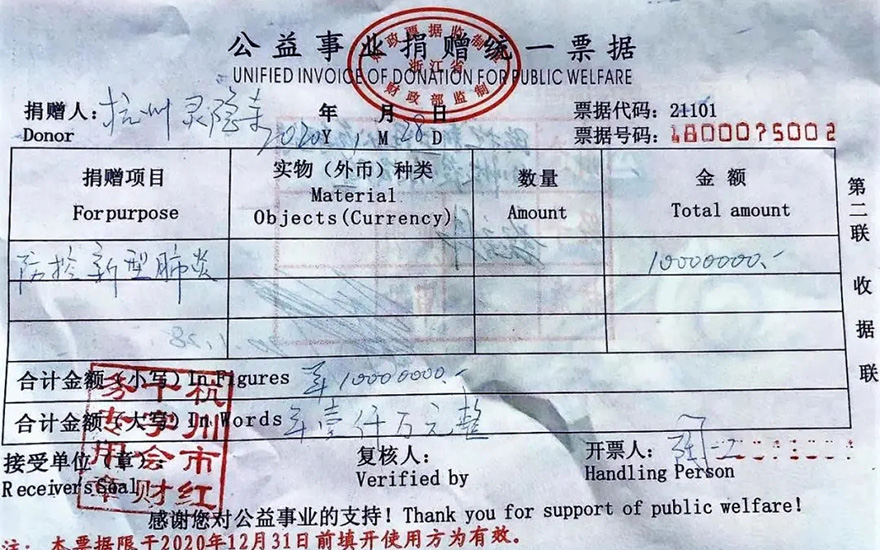 公益事业捐赠统一票据
UNIFIED INVOICE OF DONATION FOR PUBLIC WELFARE
财政票据监制章
浙江省
财政部监制
捐赠人：杭州灵隐寺 年 月 日 票据代码：21101
Donor 2020 Y 1 M 28 D 票据号码：4800075002
捐赠项目 实物（外币）种类 数量 金额
For purpose Material Objects(Currency) Amount Total amount
防控新型肺炎 10000000.-
合计金额（小写）In Figures 10000000.-
合计金额（大写）In Words 壹仟万元整
接受单位（章）： 复核人： 开票人：
Receiver's Seal Verified by Handling Person
杭州市红十字会财务专用章
第二联 收据联
感谢您对公益事业的支持！Thank you for support of public welfare!
注：本票据限于2020年12月31日前填开使用方为有效。